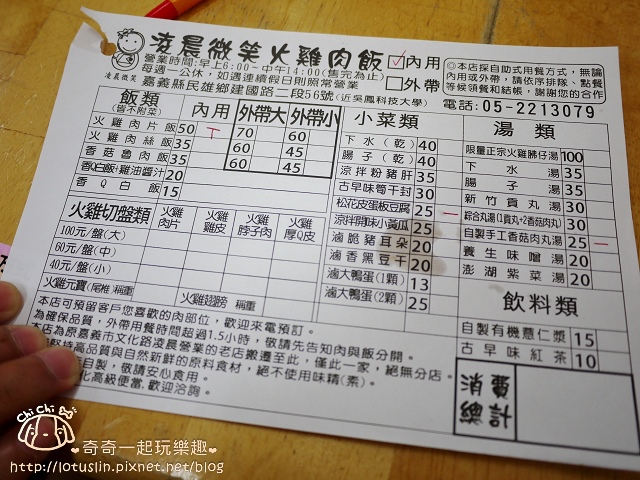 凌晨微笑火雞肉飯
凌晨微笑
營業時間:早上6:00-中午14:00(售完為止)
每週一公休,如遇連續假日則照常營業
嘉義縣民雄鄉建國路二段56號(近吳鳳科技大學)
內用
外帶
◎本店採自助式用餐方式,無論
內用或外帶,請依序排隊、點餐
等候領餐和結帳,謝謝您的合作
電話:05-2213079
飯類
(皆不附菜)
內用 外帶大 外帶小
火雞肉片飯 50 70 60
火雞肉絲飯 35 60 45
香菇魯肉飯 35 60 45
香Q白飯+雞油醬汁 20
香Q白飯 15
火雞切盤類 火雞肉片 火雞雞皮 火雞脖子肉 火雞厚Q皮
100元/盤(大)
60元/盤(中)
40元/盤(小)
火雞元寶(尾椎) 稱重 火雞翅膀 稱重
小菜類
下水(乾) 40
腸子(乾) 40
涼拌粉豬肝 35
古早味筍干封 30
松花皮蛋板豆腐 25
涼拌開味小黃瓜 25
滷脆豬耳朵 20
滷香黑豆干 20
滷大鴨蛋(1顆) 13
滷大鴨蛋(2顆) 25
湯類
限量正宗火雞胇仔湯 100
下水湯 35
腸子湯 35
新竹貢丸湯 30
綜合丸湯(1貢丸+2香菇肉丸) 30
自製手工香菇肉丸湯 25
養生味噌湯 20
澎湖紫菜湯 20
飲料類
自製有機薏仁漿 15
古早味紅茶 10
消費總計
本店可預留客戶您喜歡的肉部位,歡迎來電預訂。
為確保品質,外帶用餐時間超過1.5小時,敬請先告知肉與飯分開。
本店為原嘉義市文化路凌晨營業的老店搬遷至此,僅此一家,絕無分店。
堅持高品質與自然新鮮的原料食材,絕不使用味精(素)。
自製,敬請安心食用。
化高級便當,歡迎洽詢。
Chi Chi
奇奇一起玩樂趣
http://lotuslin.pixnet.net/blog